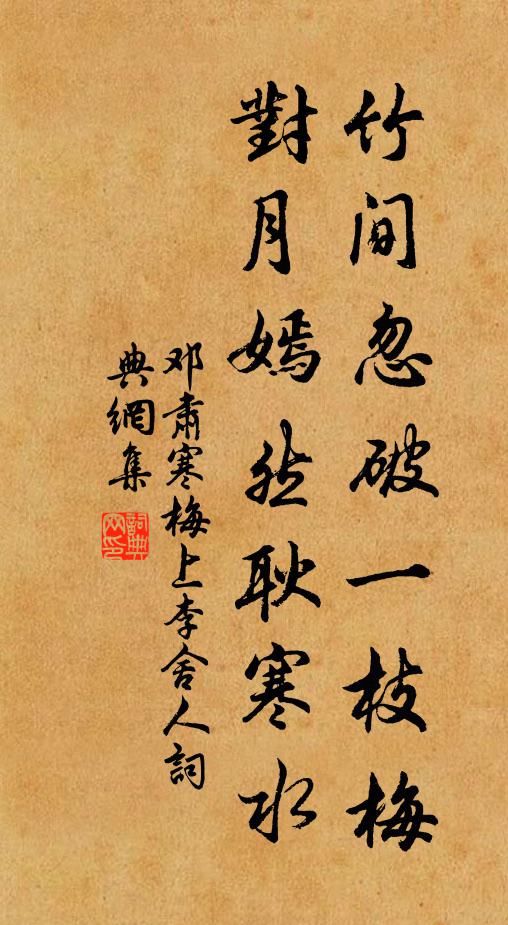 竹间忽破一枝梅
對月嫣然耿寒水
邓肅寒梅上李舍人詞
典網集
詞典網印